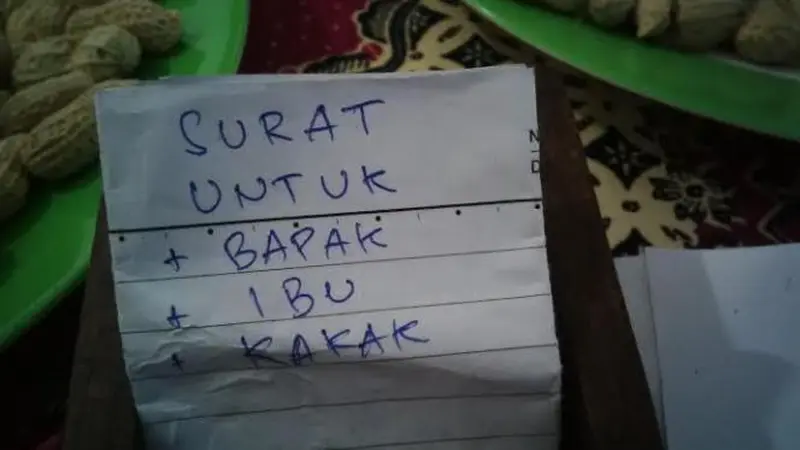 SURAT
UNTUK
+ BAPAK
+ IBU
+ KAKAK
N
D